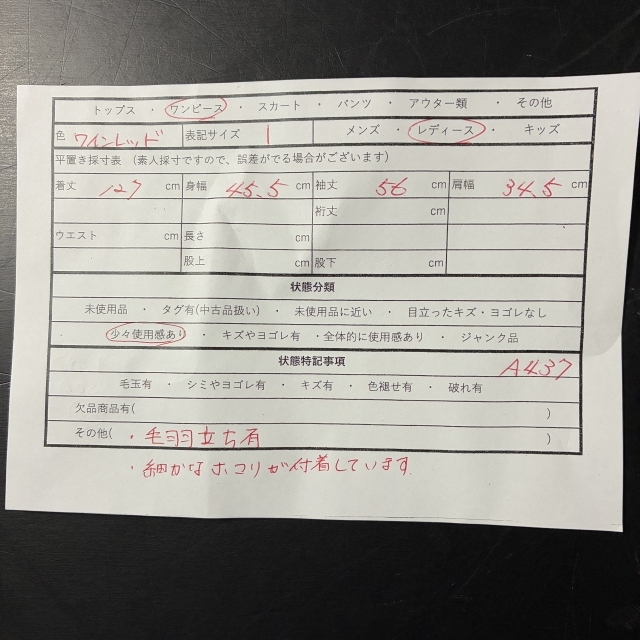 トップス ・ ワンピース ・ スカート ・ パンツ ・ アウター類 ・ その他
色 ワインレッド 表記サイズ 1 メンズ ・ レディース ・ キッズ
平置き採寸表 （素人採寸ですので、誤差がでる場合がございます）
着丈 127 cm 身幅 45.5 cm 袖丈 56 cm 肩幅 34.5 cm
裄丈 cm
ウエスト cm 長さ cm
股上 cm 股下 cm
状態分類
未使用品 ・ タグ有(中古品扱い) ・ 未使用品に近い ・ 目立ったキズ・ヨゴレなし
少々使用感あり ・ キズやヨゴレ有 ・全体的に使用感あり ・ ジャンク品
状態特記事項 A437
毛玉有 ・ シミやヨゴレ有 ・ キズ有 ・ 色褪せ有 ・ 破れ有
欠品商品有( )
その他( ・毛羽立ち有 )
・細かなホコリが付着しています